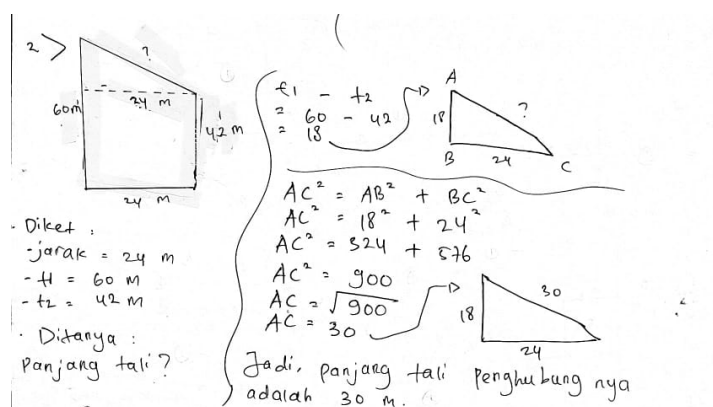 2>
?
60m
24 m
42 m
24 m
- Diket :
- jarak = 24 m
- t1 = 60 m
- t2 = 42 m
- Ditanya :
Panjang tali ?
t1 - t2
= 60 - 42
= 18
A
18
?
B
24
C
AC² = AB² + BC²
AC² = 18² + 24²
AC² = 324 + 576
AC² = 900
AC = √900
AC = 30
18
30
24
Jadi, panjang tali penghubung nya
adalah 30 m.